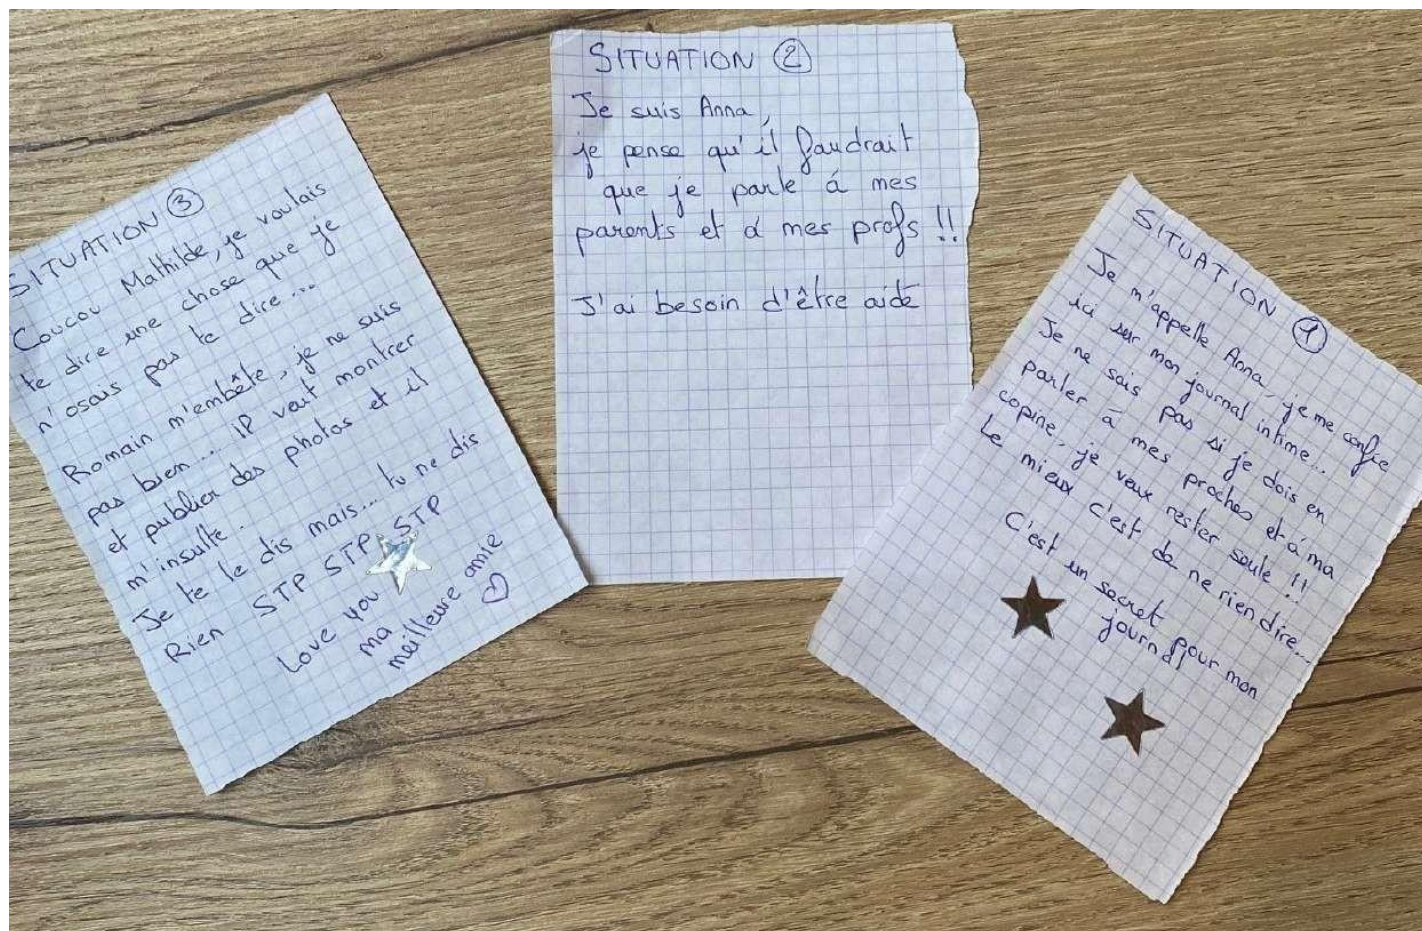 SITUATION ③
Coucou Mathilde, je voulais
te dire une chose que je
n'osais pas te dire...
Romain m'embête, je ne suis
pas bien... il veut montrer
et publier des photos et il
m'insulte.
Je te le dis mais... tu ne dis
Rien STP STP STP
Love you
ma
meilleure amie
SITUATION ②
Je suis Anna,
je pense qu'il faudrait
que je parle á mes
parents et á mes profs !!
J'ai besoin d'être aidé
SITUATION ①
Je m'appelle Anna, je me confie
ici sur mon journal intime...
Je ne sais pas si je dois en
parler à mes proches et à ma
copine, je veux rester seule !!
Le mieux c'est de ne rien dire...
C'est un secret pour mon
journal